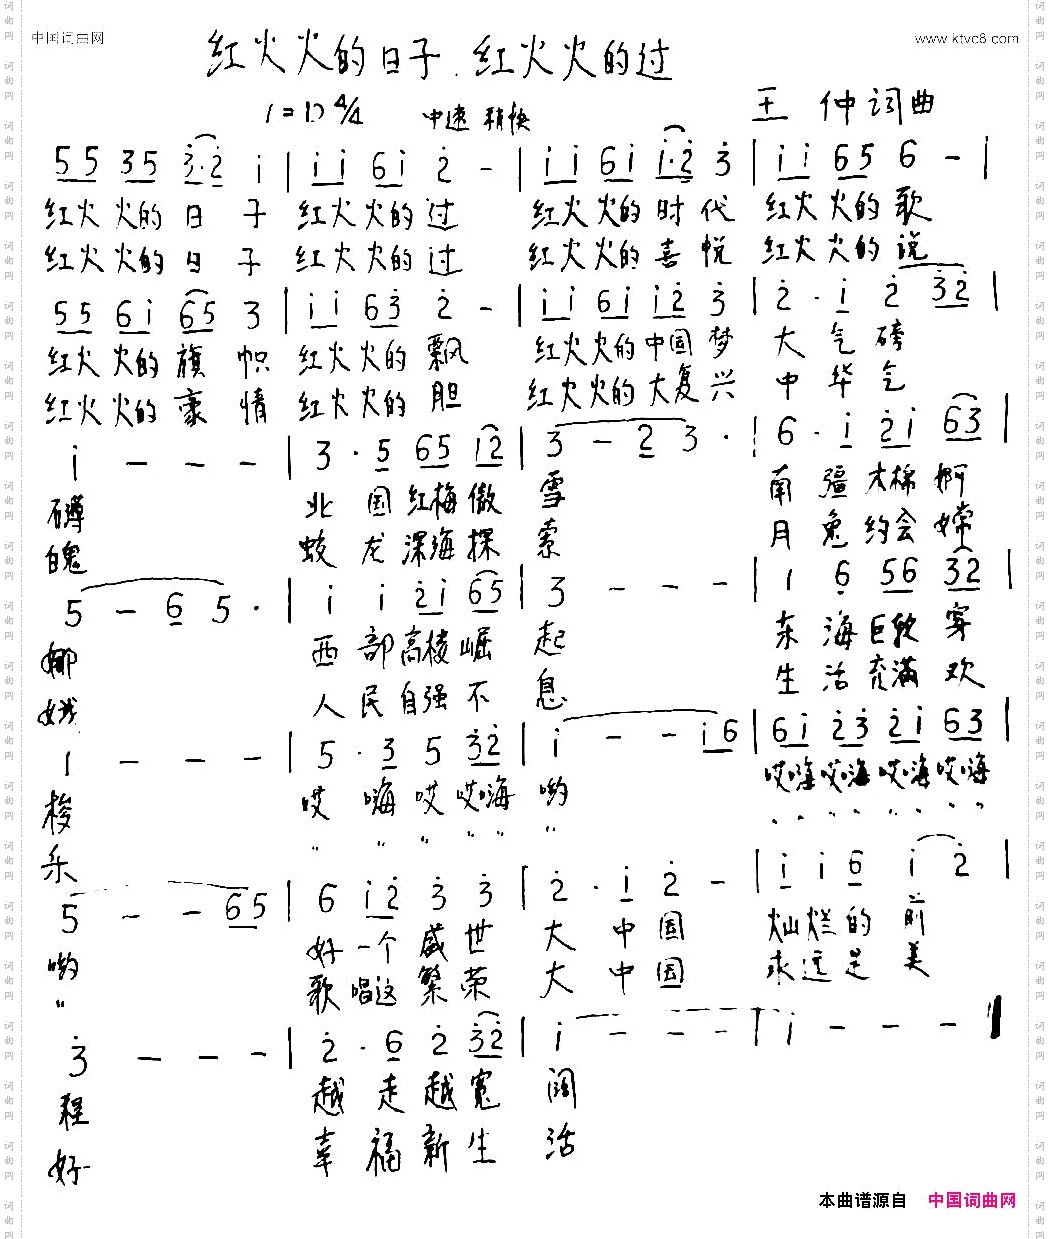 中国词曲网
www.ktvc8.com
红火火的日子 红火火的过
1=D 4/4 中速 稍快
王 仲 词曲
5 5 3 5 3·2 i | i i 6 i 2 - | i i 6 i i·2 3 | i i 6 5 6 - |
红火火的日子 红火火的过 红火火的时代 红火火的歌
红火火的日子 红火火的过 红火火的喜悦 红火火的说
5 5 6 i 6 5 3 | i i 6 3 2 - | i i 6 i i 2 3 | 2 · i 2 3 2 |
红火火的旗帜 红火火的飘 红火火的中国梦 大气磅
红火火的豪情 红火火的胆 红火火的大复兴 中华气
i - - - | 3 · 5 6 5 i 2 | 3 - 2 3 · | 6 · i 2 i 6 3 |
礴 北国红梅傲雪 南疆木棉婀
魄 蛟龙深海探索 月兔约会嫦
5 - 6 5 · | i i 2 i 6 5 | 3 - - - | 1 6 5 6 3 2 |
娜 西部高楼崛起 东海巨龙穿
娥 人民自强不息 生活充满欢
1 - - - | 5 · 3 5 3 2 | i - - i 6 | 6 i 2 3 2 i 6 3 |
梭 哎嗨哎哎嗨哟 哎嗨哎嗨哎嗨哎嗨
乐 " " " " " "
5 - - 6 5 | 6 i 2 3 3 | 2 · i 2 - | i i 6 i 2 |
哟 好一个盛世 大中国 灿烂的前
" 歌唱这繁荣 大中国 永远是美
3 - - - | 2 · 6 2 3 2 | i - - - | i - - - ‖
程 越走越宽阔
好 幸福新生活
本曲谱源自 中国词曲网